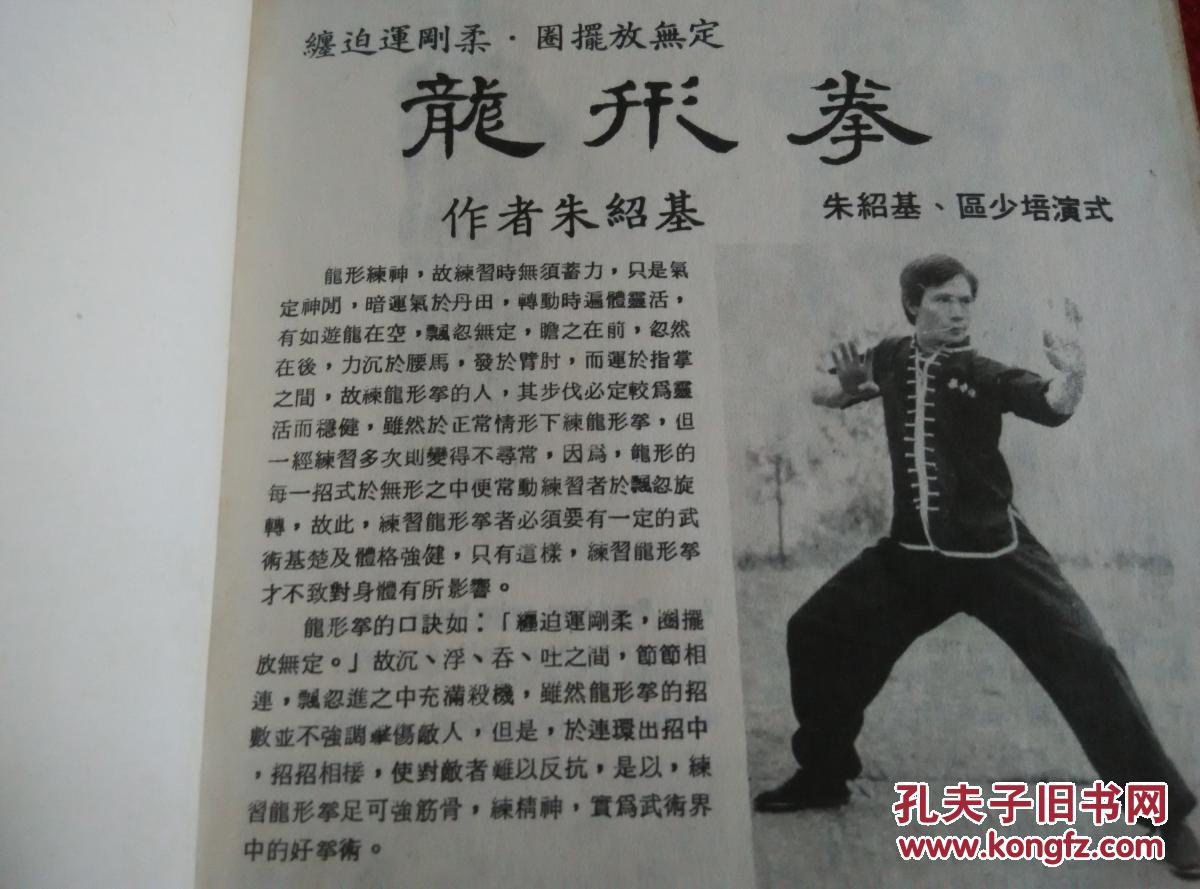 纏迫運剛柔·圈擺放無定
龍形拳
作者朱紹基
朱紹基、區少培演式
龍形練神，故練習時無須蓄力，只是氣
定神閒，暗運氣於丹田，轉動時遍體靈活，
有如遊龍在空，飄忽無定，瞻之在前，忽然
在後，力沉於腰馬，發於臂肘，而運於指掌
之間，故練龍形拳的人，其步伐必定較爲靈
活而穩健，雖然於正常情形下練龍形拳，但
一經練習多次則變得不尋常，因爲，龍形的
每一招式於無形之中便常動練習者於飄忽旋
轉，故此，練習龍形拳者必須要有一定的武
術基楚及體格強健，只有這樣，練習龍形拳
才不致對身體有所影響。
龍形拳的口訣如：「纏迫運剛柔，圈擺
放無定。」故沉、浮、吞、吐之間，節節相
連，飄忽進之中充滿殺機，雖然龍形拳的招
數並不強調擊傷敵人，但是，於連環出招中
，招招相接，使對敵者難以反抗，是以，練
習龍形拳足可強筋骨，練精神，實爲武術界
中的好拳術。
孔夫子旧书网
www.kongfz.com